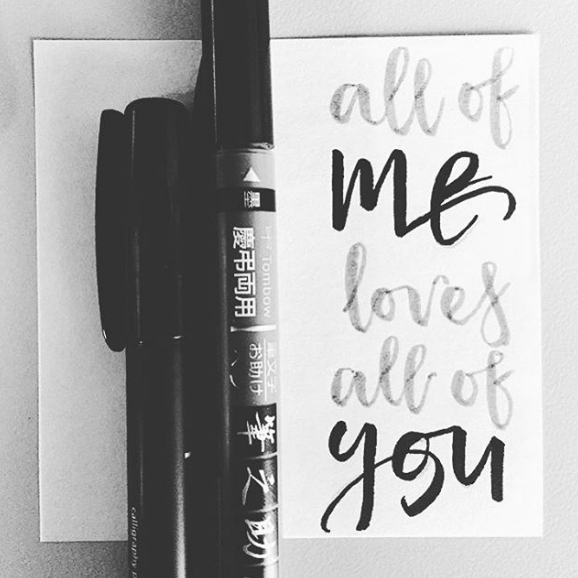 all of
me
loves
all of
you
墨
Tombow
慶弔両用
筆文字
お助け
筆之助
calligraphy